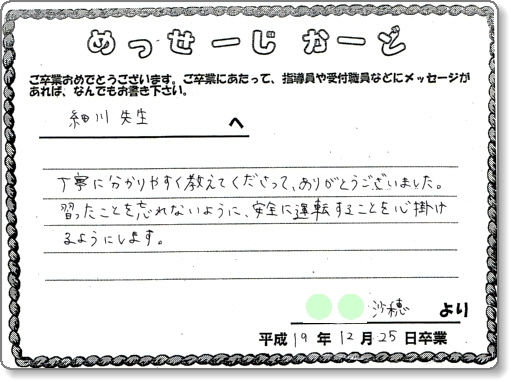 めっせーじかーど
ご卒業おめでとうございます。ご卒業にあたって、指導員や受付職員などにメッセージが
あれば、なんでもお書き下さい。
細川 先生 へ
丁寧に分かりやすく教えてくださって、ありがとうございました。
習ったことを忘れないように、安全に運転することを心掛け
るようにします。
沙穂 より
平成 19 年 12 月 25 日卒業